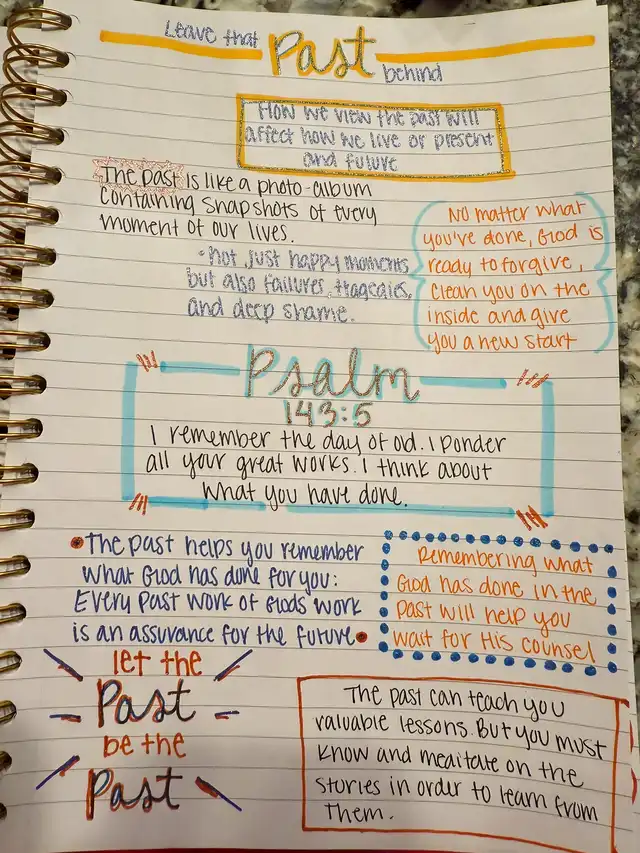 Leave that Past behind
How we view the past will
affect how we live or present
and future
The past is like a photo-album
containing snapshots of every
moment of our lives.
•not just happy moments,
but also failures, tragedies,
and deep shame.
No matter what
you've done, God is
ready to forgive,
clean you on the
inside and give
you a new start
Psalm
143:5
I remember the day of old. I ponder
all your great works. I think about
what you have done.
•The past helps you remember
what God has done for you:
Every past work of Gods work
is an assurance for the future•
Remembering what
God has done in the
past will help you
wait for His counsel
let the
Past
be the
Past
The past can teach you
valuable lessons. But you must
know and meditate on the
stories in order to learn from
them.